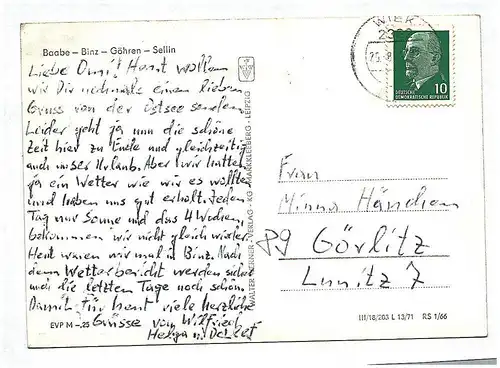 Baabe – Binz – Göhren – Sellin
Liebe Omi! Heut wollen
wir Dir nochmals einen lieben
Gruss von der Ostsee senden.
Leider geht ja nun die schöne
Zeit hier zu Ende und gleichzeitig
auch unser Urlaub. Aber wir hatten
ja ein Wetter wie wir es wollten
und haben uns gut erholt. Jeden
Tag nur Sonne und das 4 Wochen,
bekommen wir nicht gleich wieder.
Heut waren wir mal in Binz. Nach
dem Wetterbericht werden sicher
auch die letzten Tage noch schön.
Damit für heut viele herzliche
Grüsse von Wilfried
Helga u. Detlef
EVP M –.25
VERLAG · KG · MARKKLEEBERG · LEIPZIG
WIEK
10
DEUTSCHE
DEMOKRATISCHE REPUBLIK
Frau
Minna Hänchen
89 Görlitz
Lunitz 7
III/18/203 L 13/71 RS 1/66